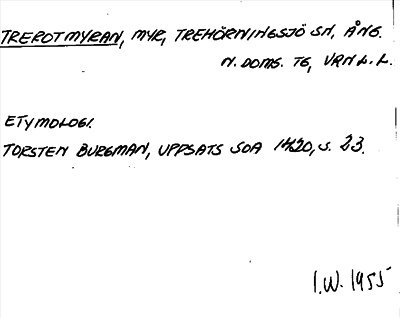 TREROTMYRAN, MYR, TREHÖRNINGSJÖ SN, ÅNG.
N. DOMS. TG, VRN L. L.
ETYMOLOGI.
TORSTEN BURGMAN, UPPSATS SOA 1420, S. 23.
I.W. 1955